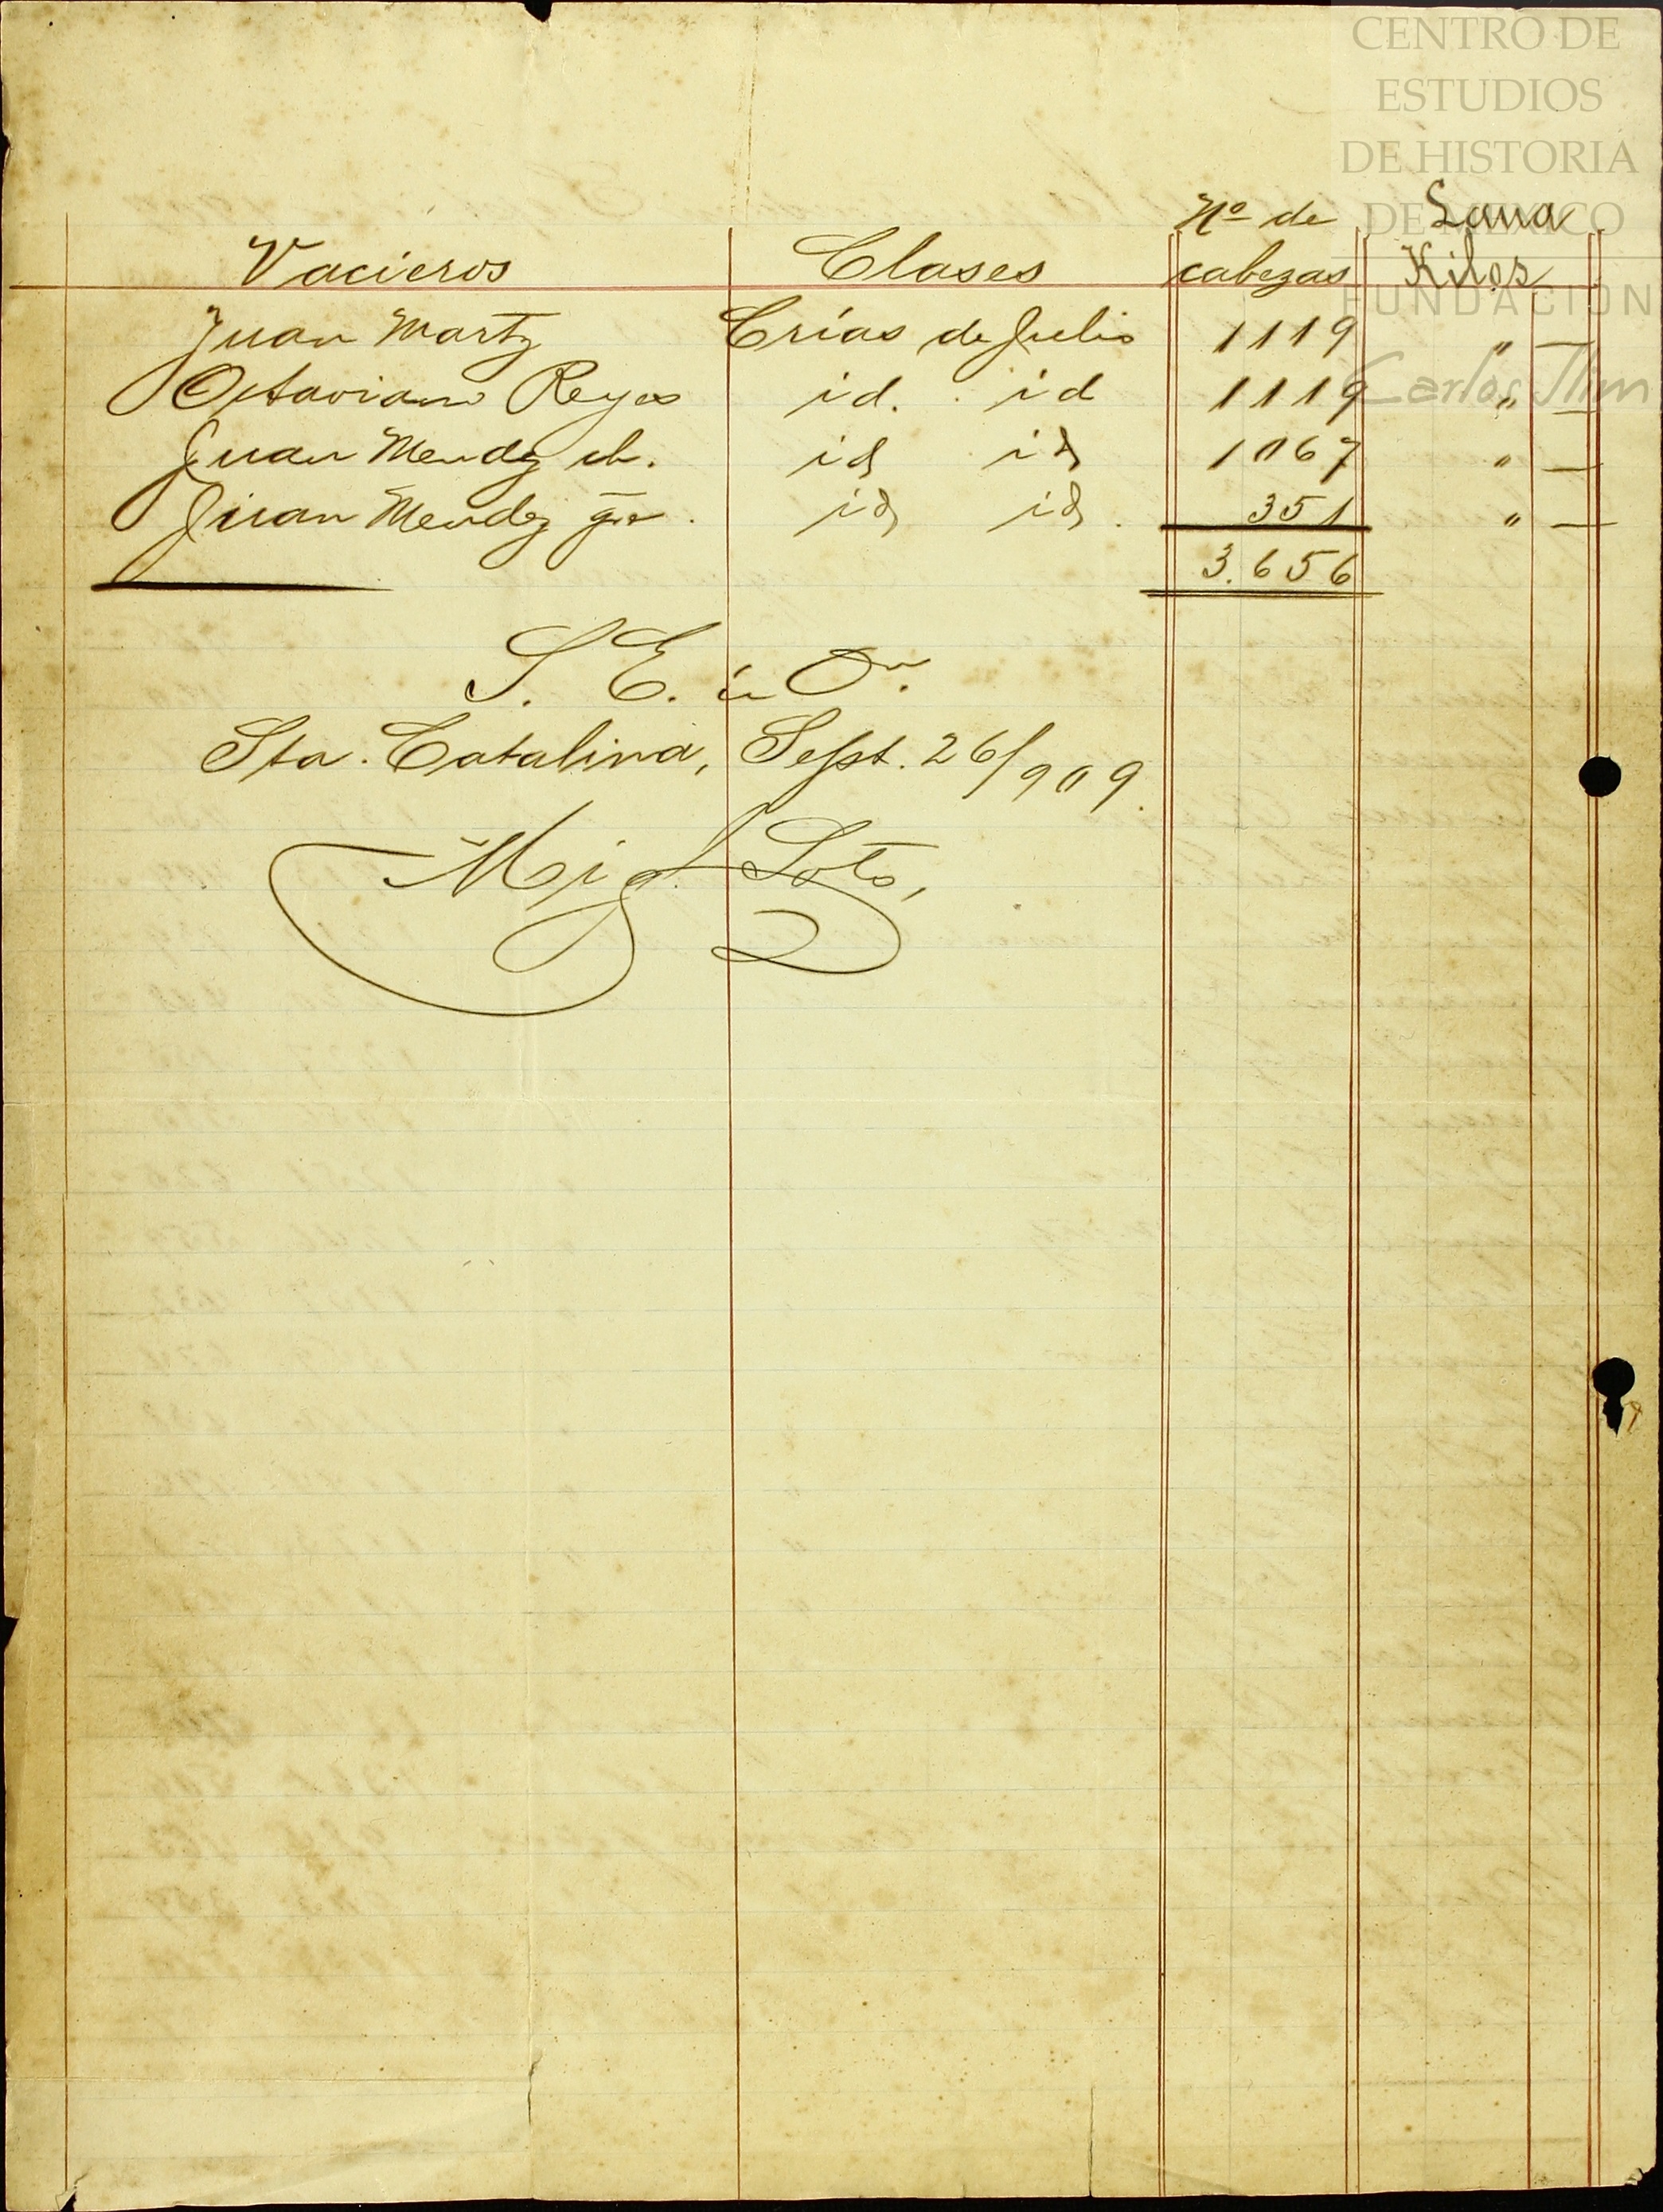 CENTRO DE
ESTUDIOS
DE HISTORIA
DE MÉXICO
FUNDACIÓN
Carlos Slim
Nº de Lana
Vacieros Clases cabezas Kilos
Juan Martz Crías de Julio 1119 " —
Octaviano Reyes id. id 1119 " —
Juan Mendz ch. id id 1067 " —
Juan Mendez gde. id id. 351 " —
3.656
S. E. ú On.
Sta. Catalina, Sept. 26/909.
Migl. Soto,